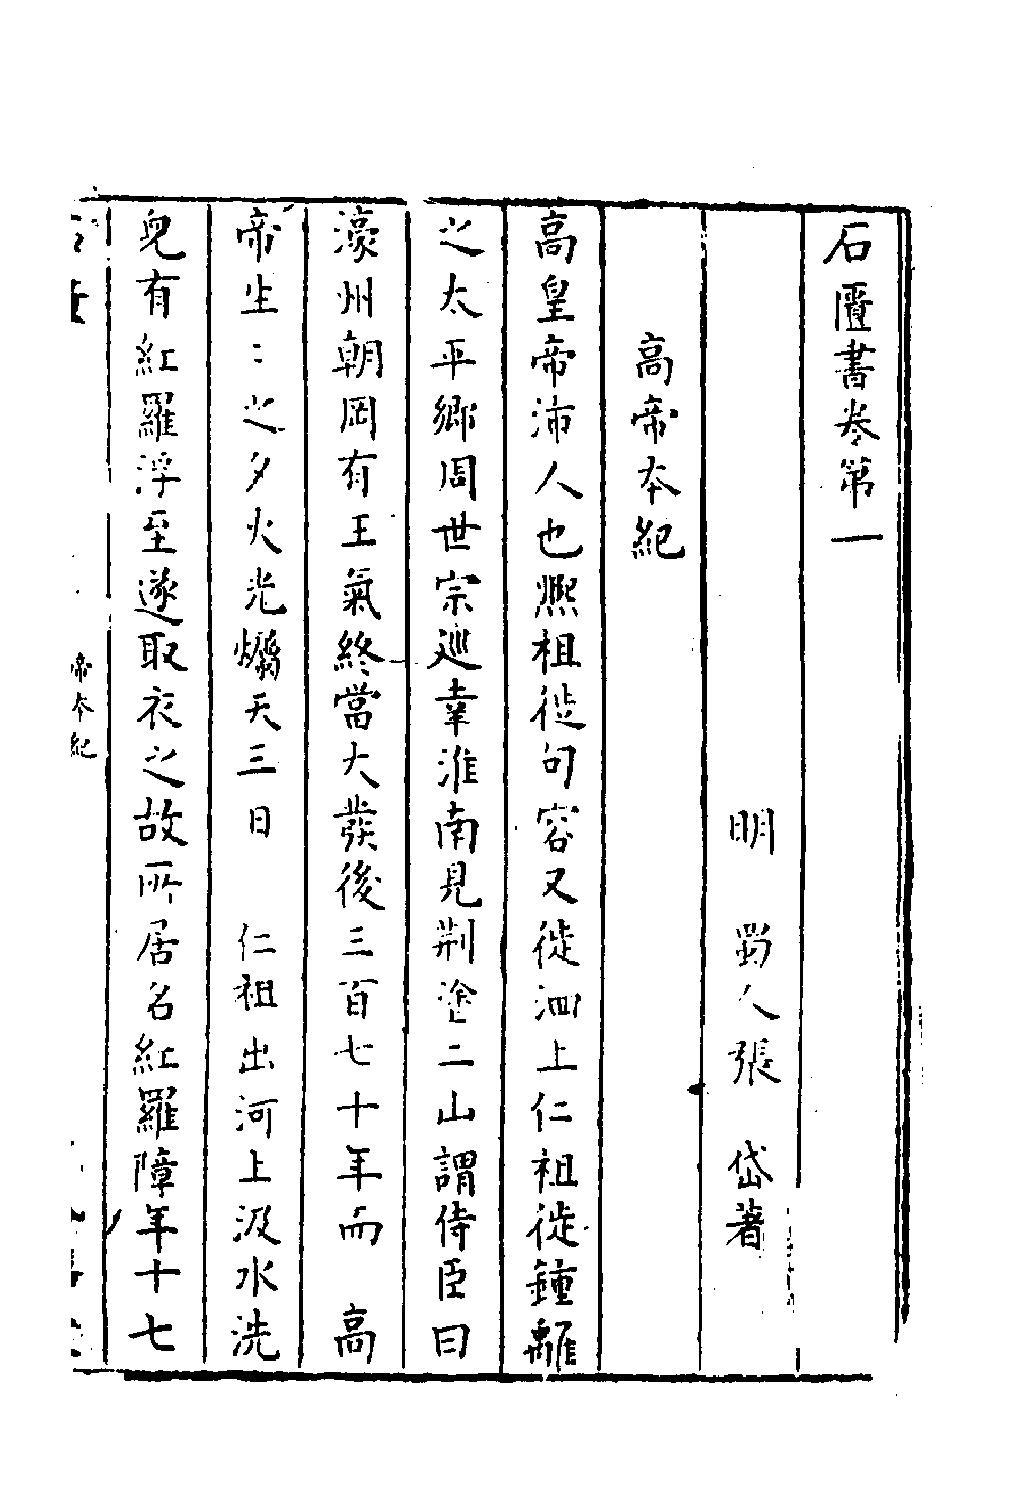 石匱書卷第一
明　蜀人張　岱著
高帝本紀
高皇帝沛人也熙祖徙句容又徙泗上仁祖徙鍾離
之太平鄉周世宗巡幸淮南見荆塗二山謂侍臣曰
濠州朝岡有王氣終當大發後三百七十年而　高
帝生〻之夕火光爛天三日　仁祖出河上汲水洗
兒有紅羅浮至遂取衣之故所居名紅羅障年十七
帝本紀